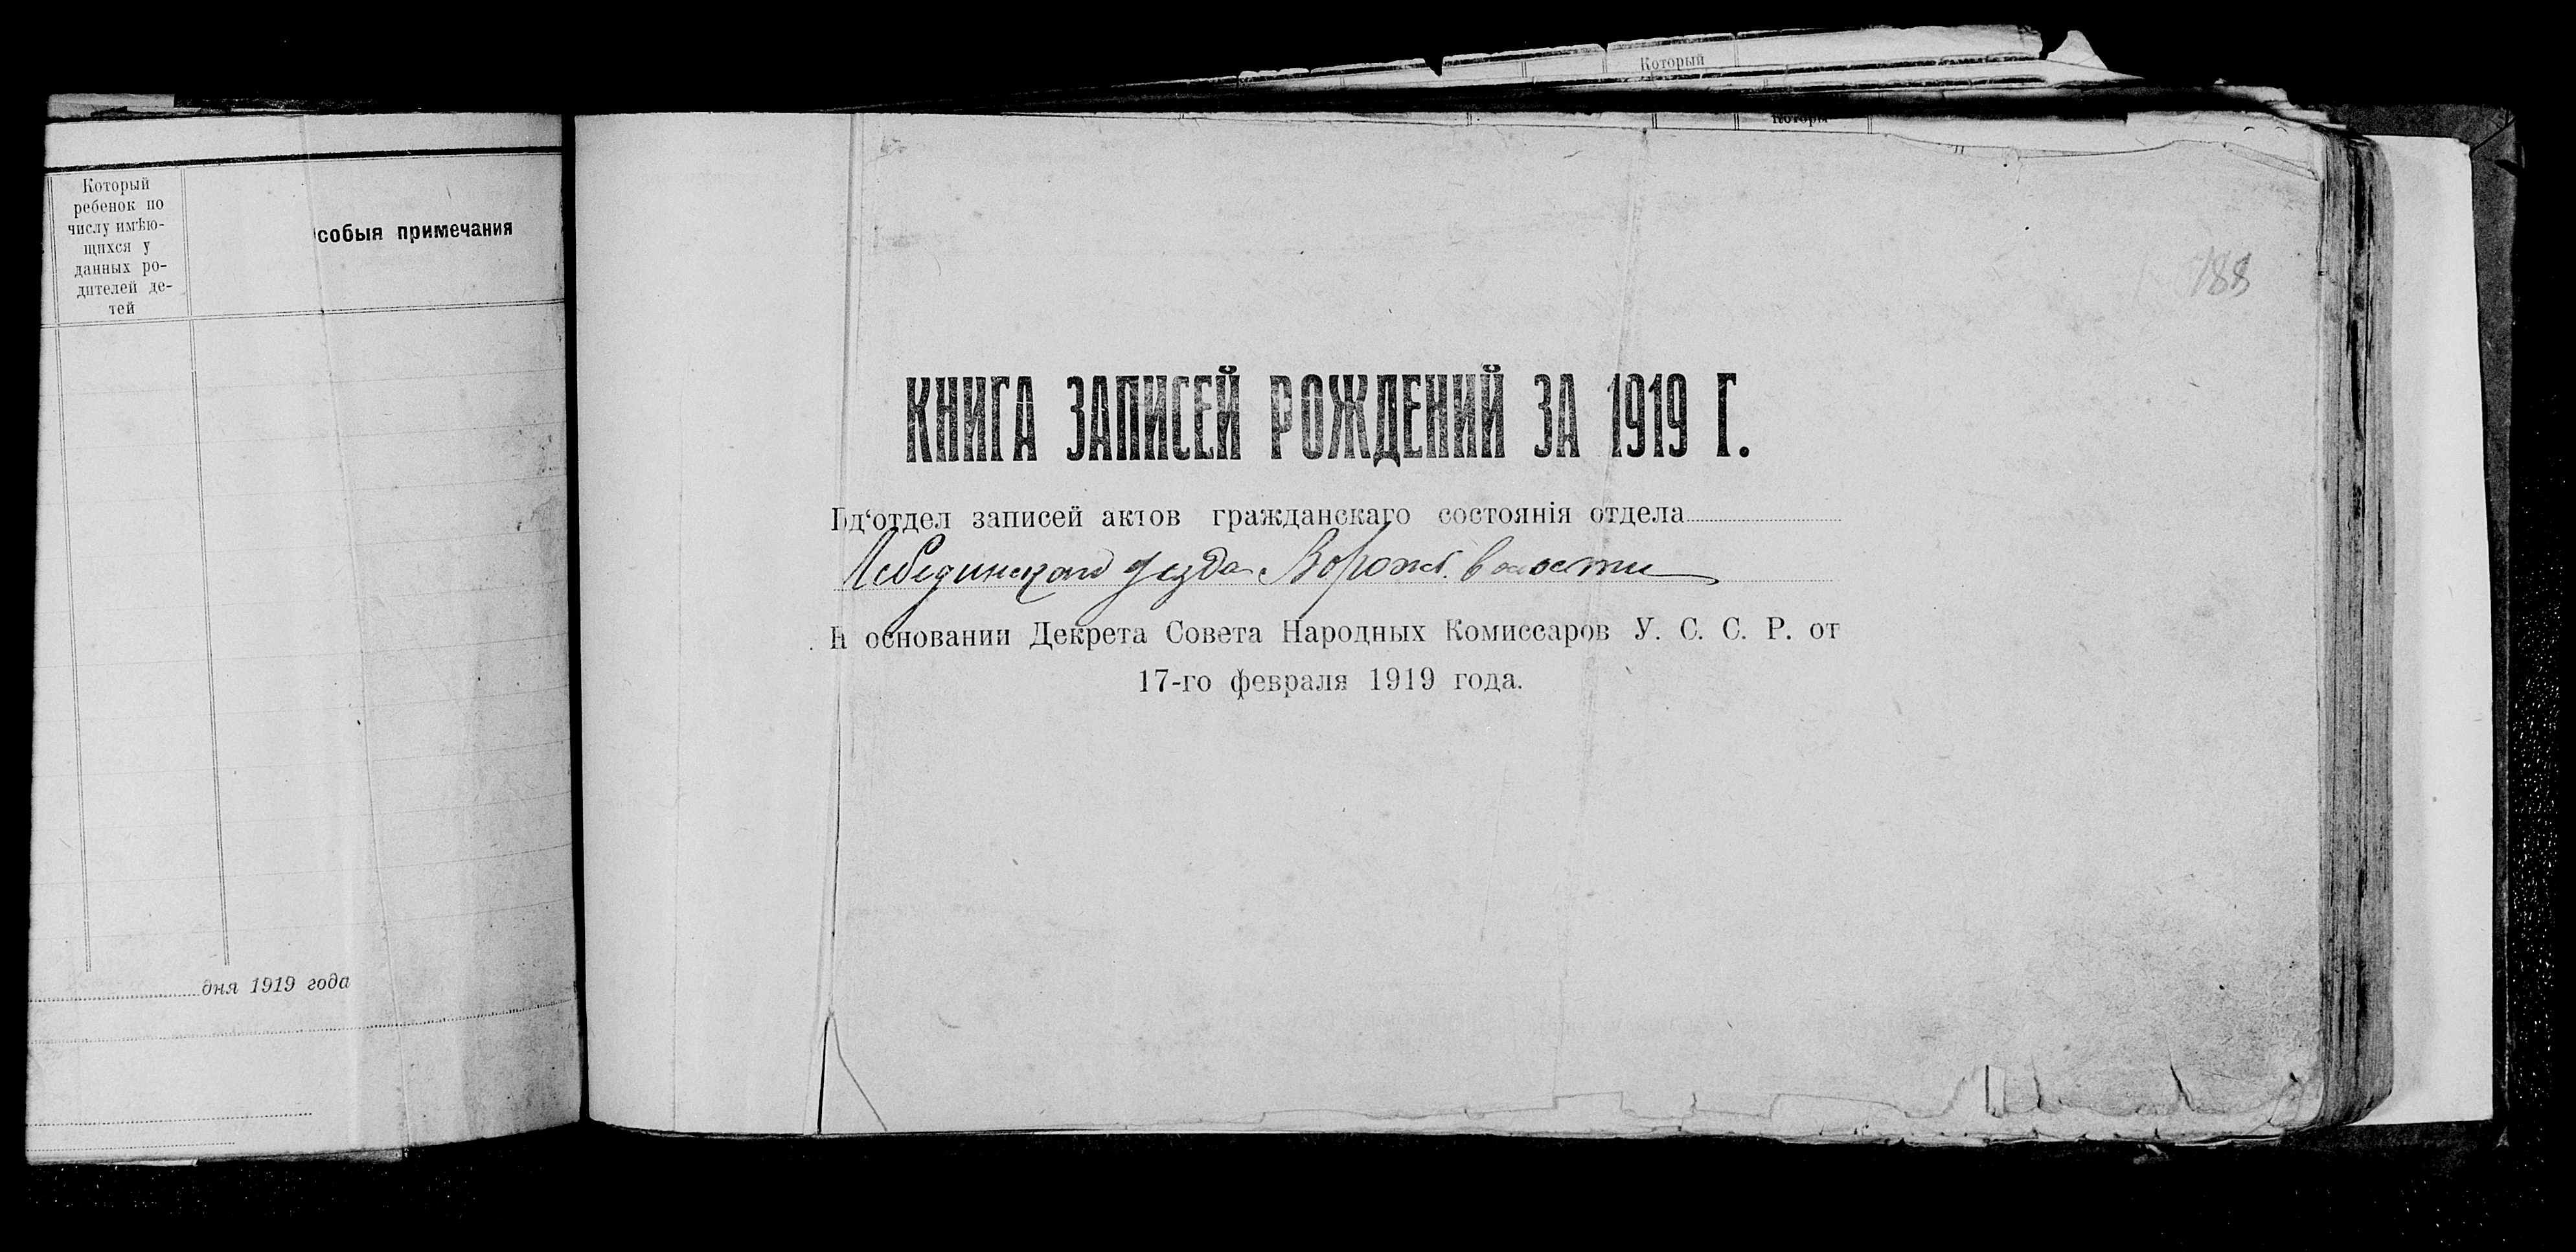 Который
Которы
Который
ребенок по
числу имѣю-
щихся у
данных ро-
дителей де-
тей
собыя примечания
дня 1919 года
188
КНИГА ЗАПИСЕЙ РОЖДЕНИЙ ЗА 1919 Г.
Пд‘отдел записей актов гражданскаго состоянія отдела
Лебединскаго уезда Ворожб. волости
Н основании Декрета Совета Народных Комиссаров У. С. С. Р. от
17-го февраля 1919 года.